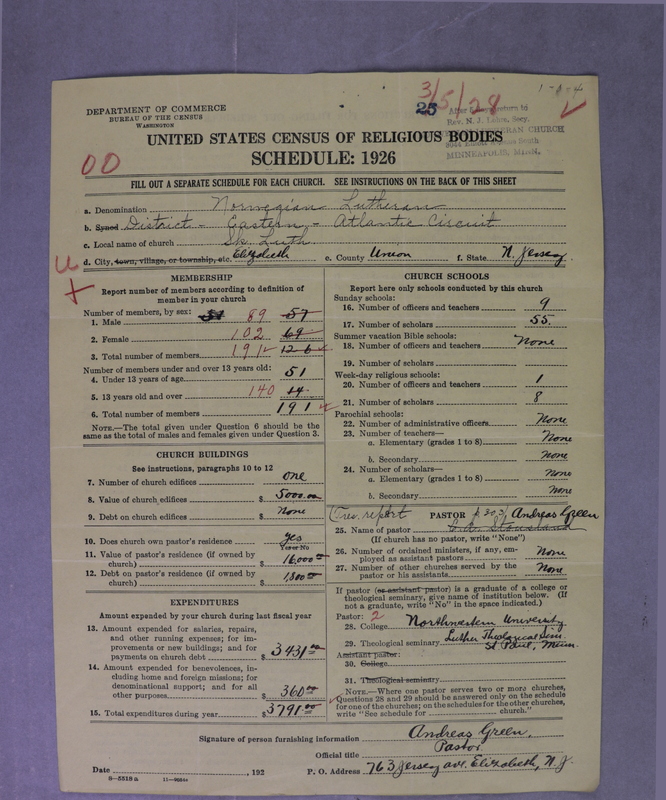 DEPARTMENT OF COMMERCE
BUREAU OF THE CENSUS
WASHINGTON
3/5/28
25
1-8-4
After return to
Rev. N. J. Secy.
CHURCH
South
MINNEAPOLIS, MINN.
UNITED STATES CENSUS OF RELIGIOUS BODIES
SCHEDULE: 1926
00
FILL OUT A SEPARATE SCHEDULE FOR EACH CHURCH. SEE INSTRUCTIONS ON THE BACK OF THIS SHEET
a. Denomination Norwegian Lutheran
b. Synod District - Eastern - Atlantic Circuit
c. Local name of church Luth
d. City, town, village, or township, etc. Elizabeth e. County Union f. State N. Jersey
MEMBERSHIP
Report number of members according to definition of
member in your church
Number of members, by sex:
1. Male 89 57
2. Female 102 69
3. Total number of members 191 126
Number of members under and over 13 years old:
4. Under 13 years of age 51
5. 13 years old and over 140
6. Total number of members 191
NOTE.—The total given under Question 6 should be the
same as the total of males and females given under Question 3.
CHURCH BUILDINGS
See instructions, paragraphs 10 to 12
7. Number of church edifices one
8. Value of church edifices $ 5000.00
9. Debt on church edifices $ None
10. Does church own pastor's residence yes
Yes or No
11. Value of pastor's residence (if owned by
church) $ 16,000 00
12. Debt on pastor's residence (if owned by
church) $ 1,800 00
EXPENDITURES
Amount expended by your church during last fiscal year
13. Amount expended for salaries, repairs,
and other running expenses; for im-
provements or new buildings; and for
payments on church debt $ 3431 00
14. Amount expended for benevolences, in-
cluding home and foreign missions; for
denominational support; and for all
other purposes $ 360 00
15. Total expenditures during year $ 3791 00
CHURCH SCHOOLS
Report here only schools conducted by this church
Sunday schools:
16. Number of officers and teachers 9
17. Number of scholars 55.
Summer vacation Bible schools:
18. Number of officers and teachers None
19. Number of scholars
Week-day religious schools:
20. Number of officers and teachers 1
21. Number of scholars 8
Parochial schools:
22. Number of administrative officers None
23. Number of teachers—
a. Elementary (grades 1 to 8) None
b. Secondary None
24. Number of scholars—
a. Elementary (grades 1 to 8) None
b. Secondary None
PASTOR Andreas Green
25. Name of pastor
(If church has no pastor, write "None")
26. Number of ordained ministers, if any, em-
ployed as assistant pastors None
27. Number of other churches served by the
pastor or his assistants None
If pastor (or assistant pastor) is a graduate of a college or
theological seminary, give name of institution below. (If
not a graduate, write "No" in the space indicated.)
Pastor: 2
28. College Northwestern University
29. Theological seminary Luther Theological Sem.
St Paul, Minn.
Assistant pastor:
30. College
31. Theological seminary
NOTE.—Where one pastor serves two or more churches,
Questions 28 and 29 should be answered only on the schedule
for one of the churches; on the schedules for the other churches,
write "See schedule for church."
Signature of person furnishing information Andreas Green
Official title Pastor
Date , 192 P. O. Address 763 Jersey Ave. Elizabeth, N. J.
8—5518 a